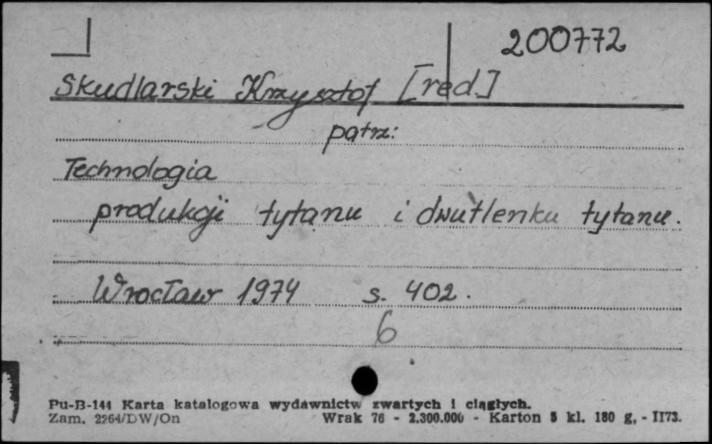 200772
Skudlarski Krzysztof [red.]
patrz:
Technologia
produkcji tytanu i dwutlenku tytanu.
Wrocław 1974 s. 402.
6
Pu-B-144 Karta katalogowa wydawnictw zwartych i ciągłych.
Zam. 2264/DW/On Wrak 76 - 2.300.000 - Karton 3 kl. 180 g, - II73.